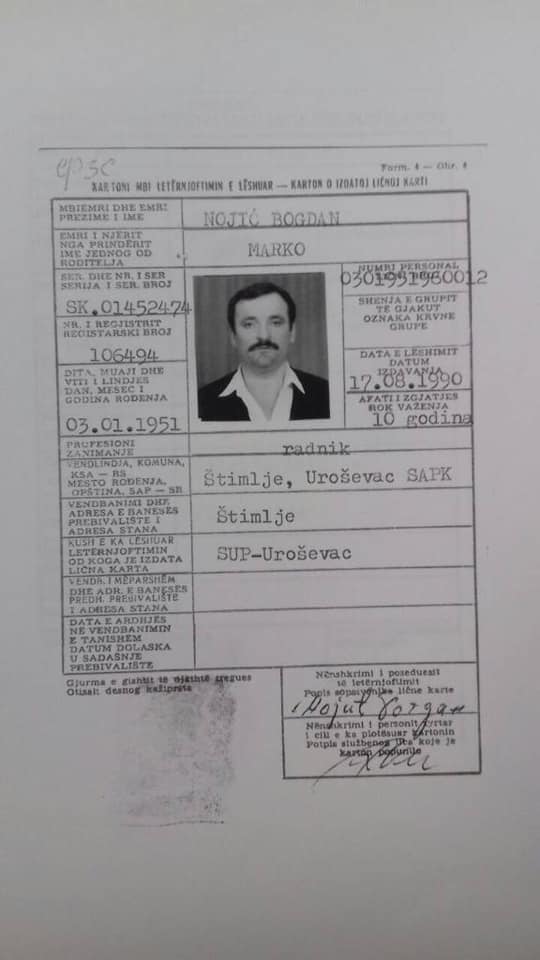 epsc
Form. 4 — Obr. 4
KARTONI MBI LETËRNJOFTIMIN E LËSHUAR — KARTON O IZDATOJ LIČNOJ KARTI
MBIEMRI DHE EMRI
PREZIME I IME
NOJIĆ BOGDAN
EMRI I NJËRIT
NGA PRINDËRIT
IME JEDNOG OD
RODITELJA
MARKO
SER. DHE NR. I SER
SERIJA I SER. BROJ
SK.01452474
NR. I REGJISTRIT
REGISTARSKI BROJ
106494
DITA, MUAJI DHE
VITI I LINDJES
DAN, MESEC I
GODINA ROĐENJA
03.01.1951
NUMRI PERSONAL
0301951960012
SHENJA E GRUPIT
TË GJAKUT
OZNAKA KRVNE
GRUPE
DATA E LËSHIMIT
DATUM
IZDAVANJA
17.08.1990
AFATI I ZGJATJES
ROK VAŽENJA
10 godina
PROFESIONI
ZANIMANJE
radnik
VENDLINDJA, KOMUNA,
KSA — RS
MESTO ROĐENJA,
OPŠTINA, SAP — SR
Štimlje, Uroševac SAPK
VENDBANIMI DHE
ADRESA E BANESËS
PREBIVALIŠTE I
ADRESA STANA
Štimlje
KUSH E KA LËSHUAR
LETËRNJOFTIMIN
OD KOGA JE IZDATA
LIČNA KARTA
SUP-Uroševac
VENDB. I MËPARSHËM
DHE ADR. E BANESËS
PREDH. PREBIVALIŠTE
I ADRESA STANA
DATA E ARDHJES
NË VENDBANIMIN
E TANISHËM
DATUM DOLASKA
U SADAŠNJE
PREBIVALIŠTE
Gjurma e gishtit të djathtë tregues
Otisak desnog kažiprsta
Nënshkrimi i poseduesit
të letërnjoftimit
Potpis sopstvenika lične karte
Nënshkrimi i personit zyrtar
i cili e ka plotësuar kartonin
Potpis službenog lica koje je
karton popunilo